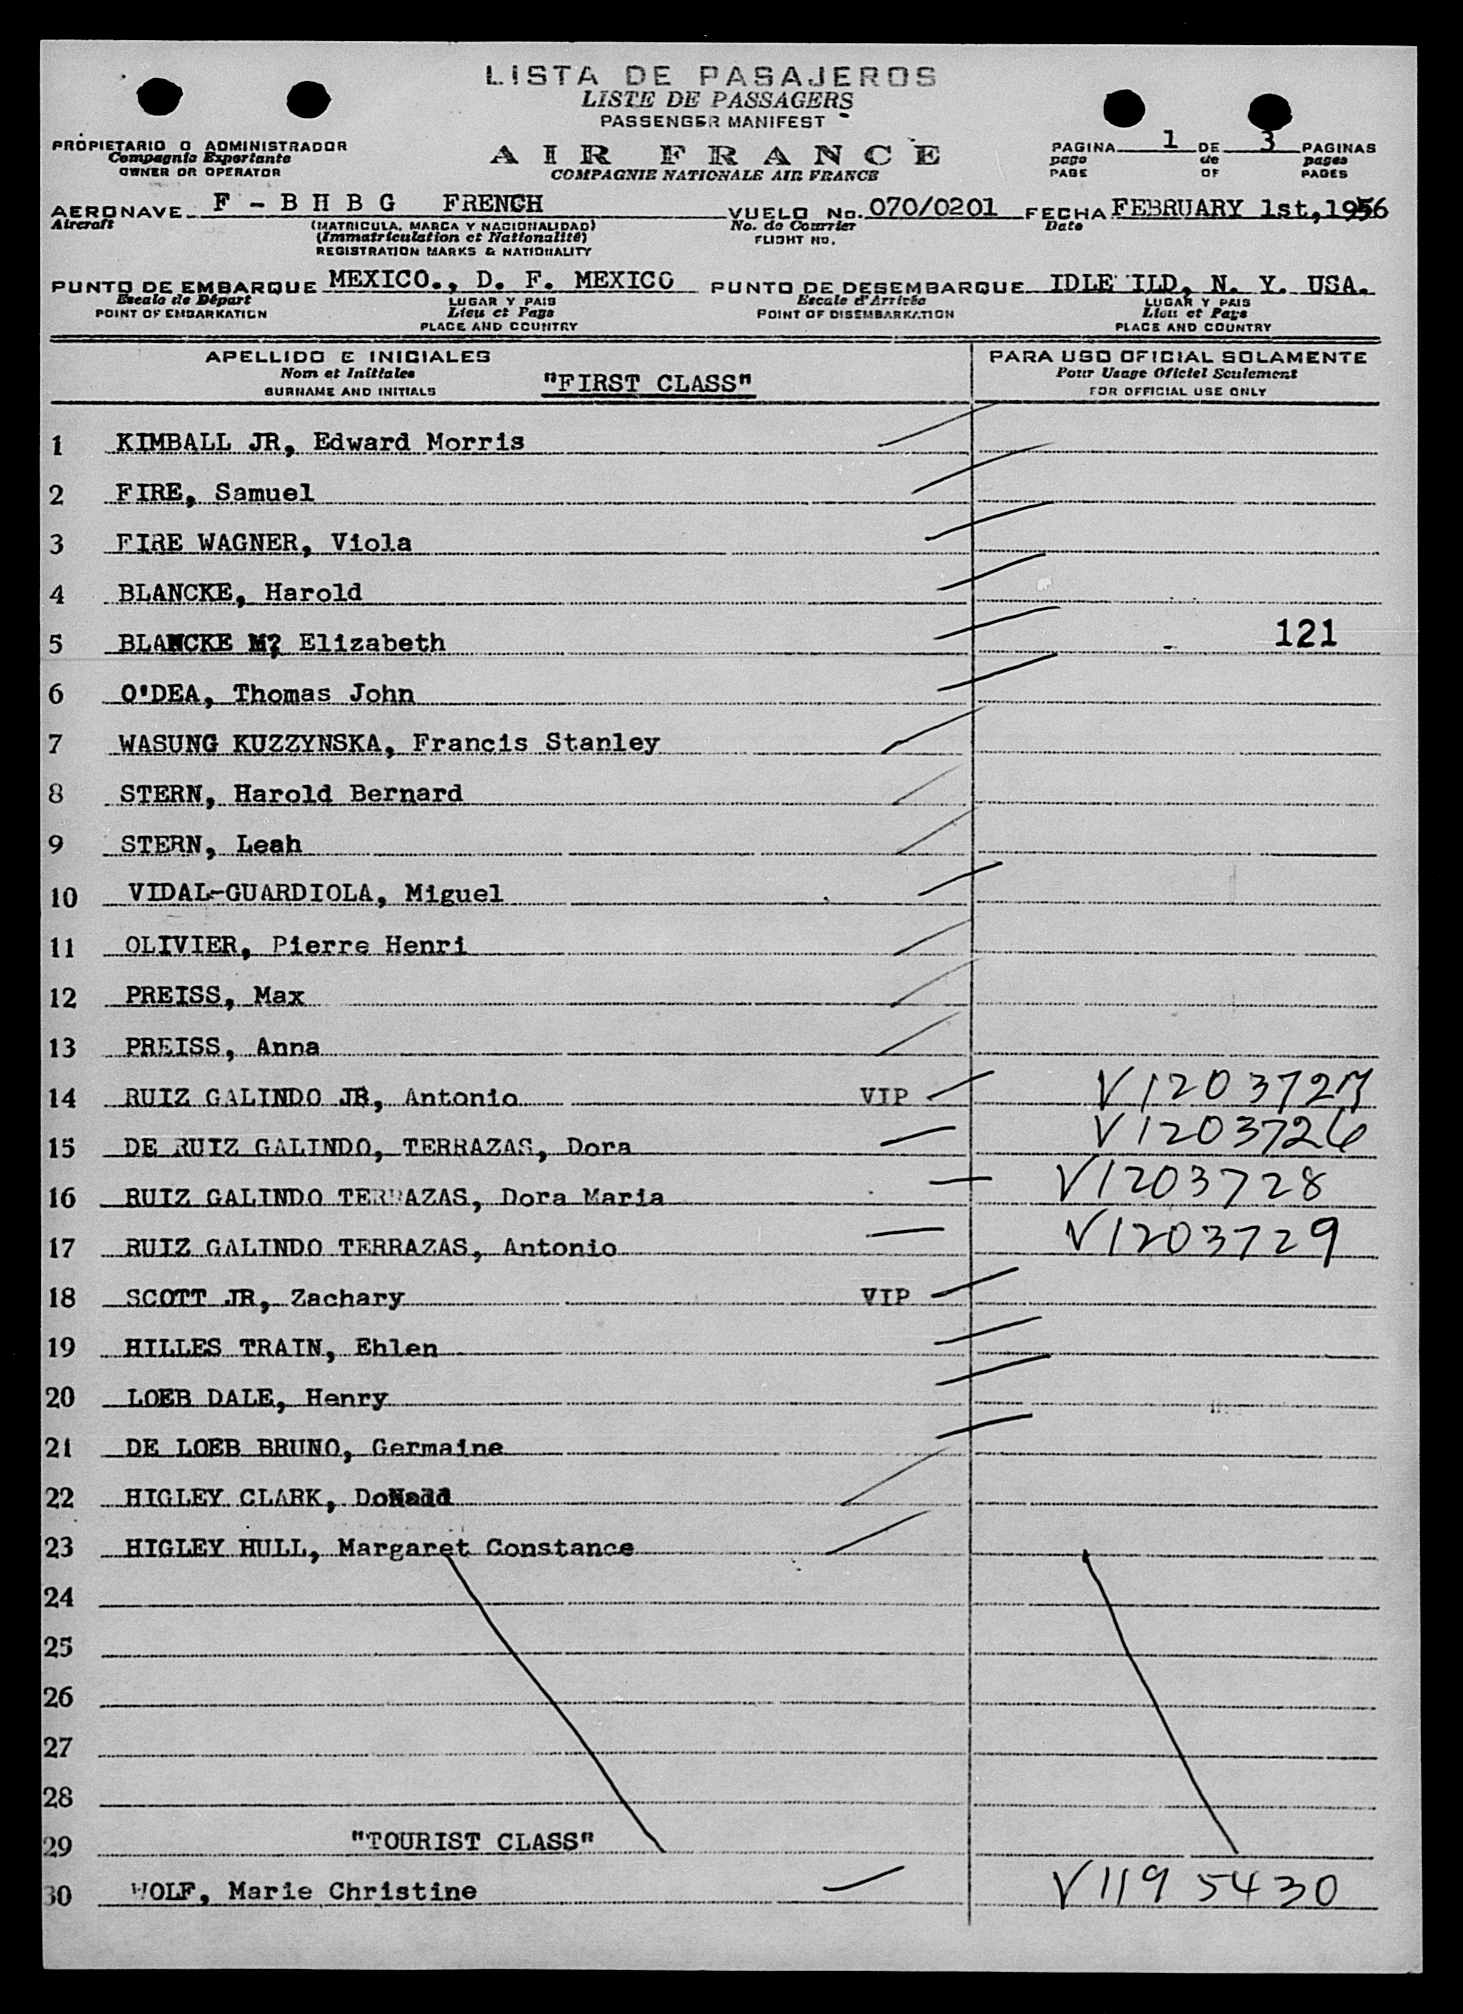 LISTA DE PASAJEROS
LISTE DE PASSAGERS
PASSENGER MANIFEST
PROPIETARIO O ADMINISTRADOR
Compagnie Exportante
OWNER OR OPERATOR
AIR FRANCE
COMPAGNIE NATIONALE AIR FRANCE
PAGINA 1 DE 3 PAGINAS
page de pages
PAGE OF PAGES
AERONAVE F - B H B G FRENCH
Aircraft
(MATRICULA, MARCA Y NACIONALIDAD)
(Immatriculation et Nationalité)
REGISTRATION MARKS & NATIONALITY
VUELO No. 070/0201
No. do Courrier
FLIGHT NO.
FECHA FEBRUARY 1st, 1956
Date
PUNTO DE EMBARQUE MEXICO., D. F. MEXICO
Escale de Départ
POINT OF EMBARKATION
LUGAR Y PAIS
Lieu et Pays
PLACE AND COUNTRY
PUNTO DE DESEMBARQUE IDLE ILD, N. Y. USA.
Escale d'Arrivée
POINT OF DISEMBARKATION
LUGAR Y PAIS
Lieu et Pays
PLACE AND COUNTRY
APELLIDO E INICIALES
Nom et Initiales
SURNAME AND INITIALS
"FIRST CLASS"
PARA USO OFICIAL SOLAMENTE
Pour Usage Oficiel Seulement
FOR OFFICIAL USE ONLY
1 KIMBALL JR, Edward Morris
2 FIRE, Samuel
3 FIRE WAGNER, Viola
4 BLANCKE, Harold
5 BLANCKE M? Elizabeth 121
6 O'DEA, Thomas John
7 WASUNG KUZZYNSKA, Francis Stanley
8 STERN, Harold Bernard
9 STERN, Leah
10 VIDAL-GUARDIOLA, Miguel
11 OLIVIER, Pierre Henri
12 PREISS, Max
13 PREISS, Anna
14 RUIZ GALINDO JR, Antonio VIP V1203727
15 DE RUIZ GALINDO, TERRAZAS, Dora V1203726
16 RUIZ GALINDO TERRAZAS, Dora Maria V1203728
17 RUIZ GALINDO TERRAZAS, Antonio V1203729
18 SCOTT JR, Zachary VIP
19 HILLES TRAIN, Ehlen
20 LOEB DALE, Henry
21 DE LOEB BRUNO, Germaine
22 HIGLEY CLARK, Donadd
23 HIGLEY HULL, Margaret Constance
24
25
26
27
28
29 "TOURIST CLASS"
30 WOLF, Marie Christine V1195430